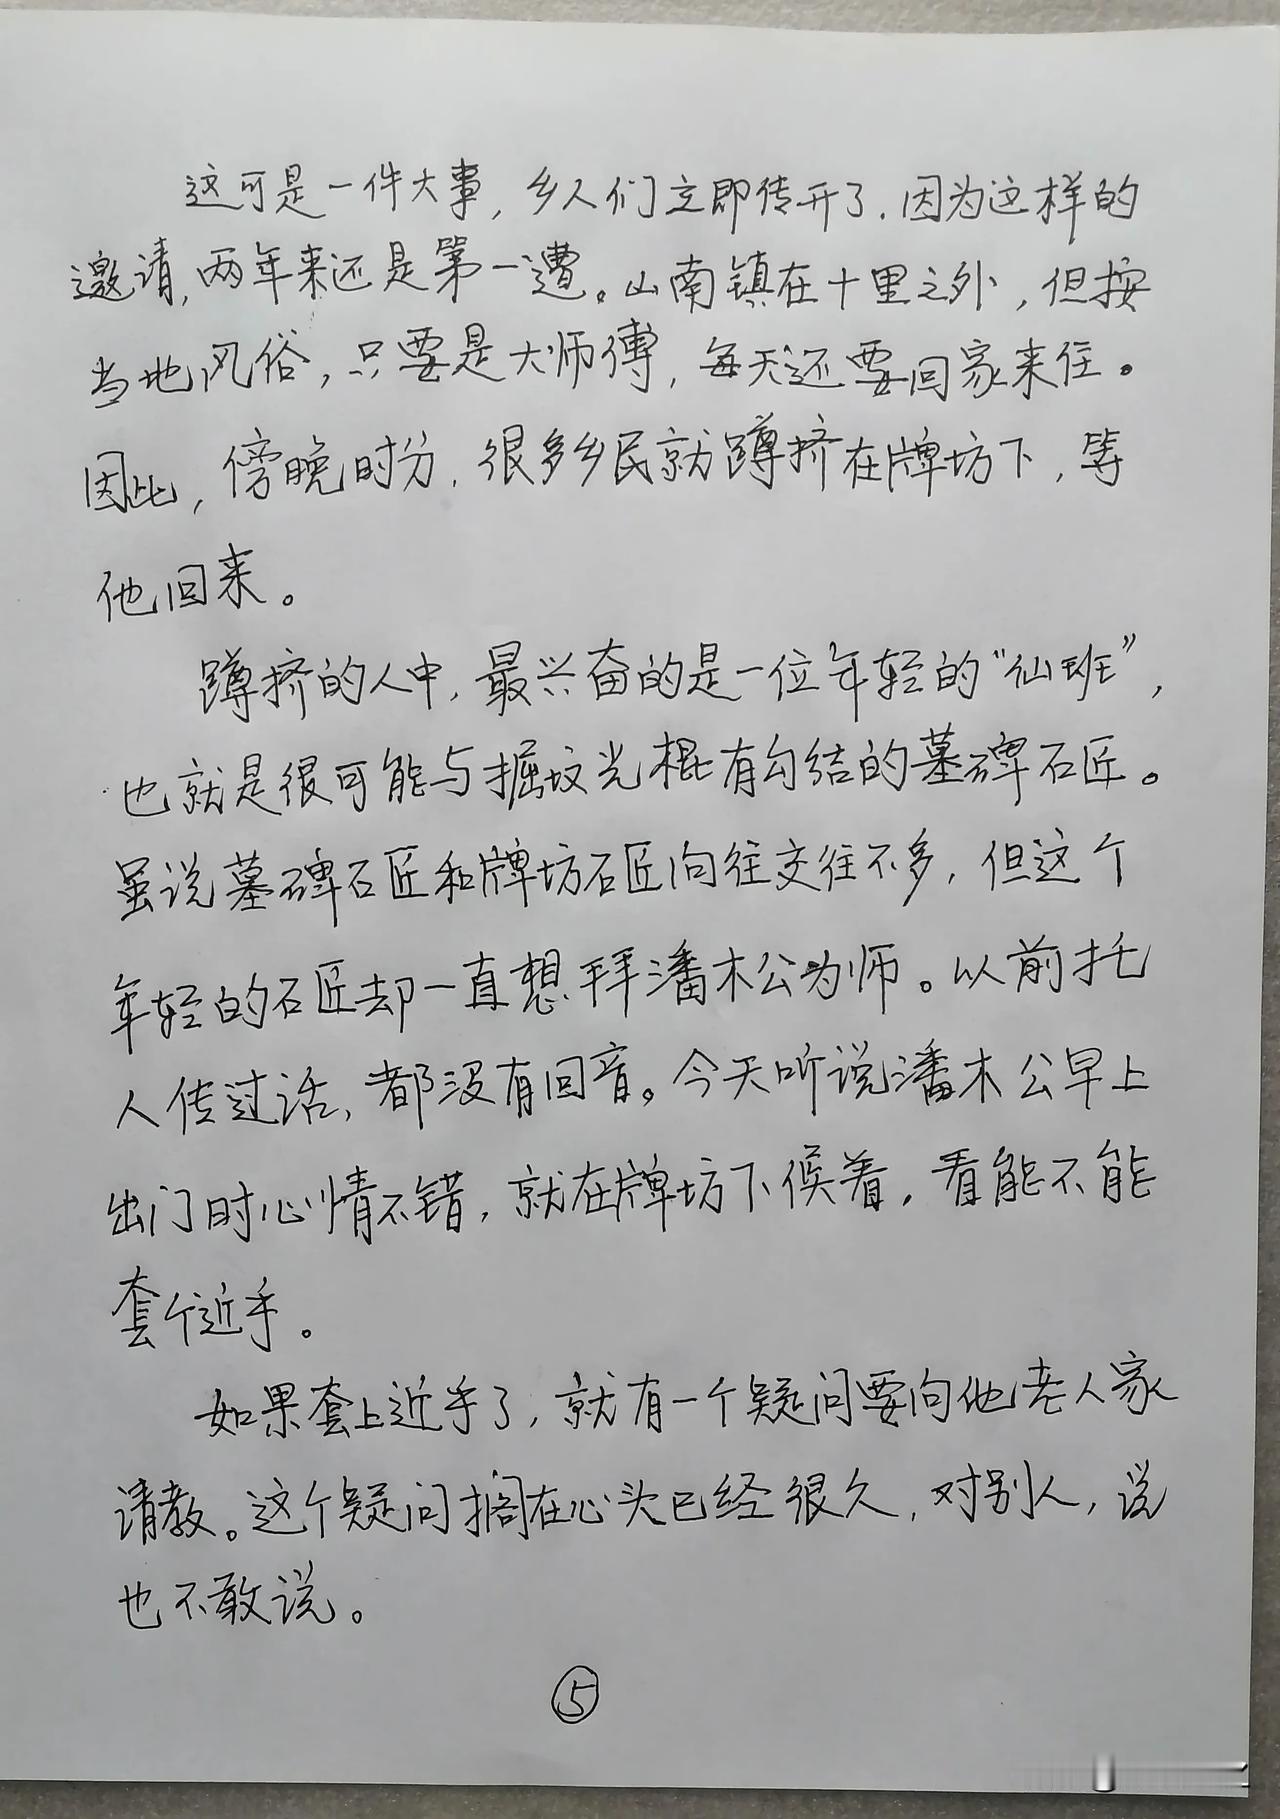 这可是一件大事，乡人们立即传开了．因为这样的
邀请，两年来还是第一遭。山南镇在十里之外，但按
当地风俗，只要是大师傅，每天还要回家来住。
因此，傍晚时分，很多乡民就蹲挤在牌坊下，等
他回来。
蹲挤的人中，最兴奋的是一位年轻的“仙班”，
也就是很可能与掘坟光棍有勾结的墓碑石匠。
虽说墓碑石匠和牌坊石匠向往交往不多，但这个
年轻的石匠却一直想拜潘木公为师。以前托
人传过话，都没有回音。今天听说潘木公早上
出门时心情不错，就在牌坊下候着，看能不能
套个近乎。
如果套上近乎了，就有一个疑问要向他老人家
请教。这个疑问搁在心头已经很久，对别人，说
也不敢说。
⑤